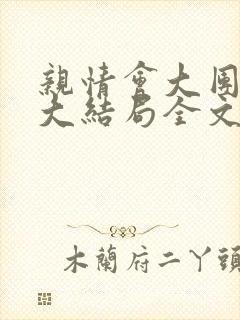 親情會大團
大結局全文
木蘭府二丫頭